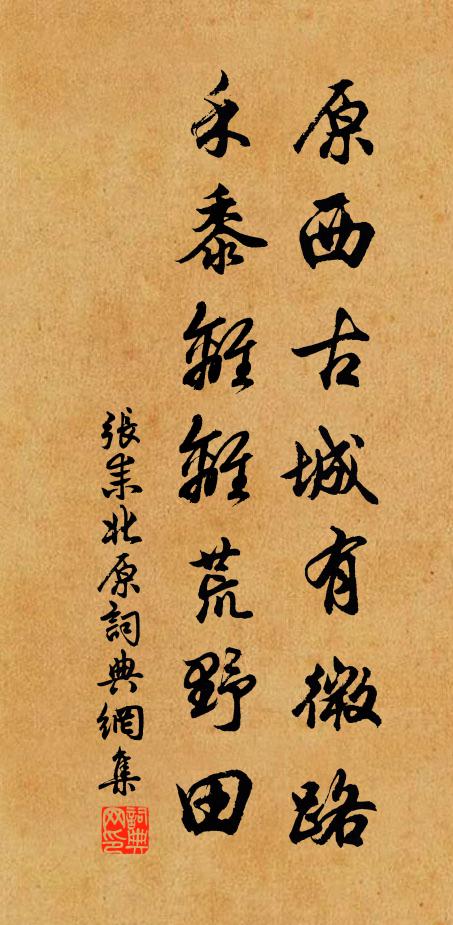 原西古城有微路
禾黍離離荒野田
張耒北原詞典網集
詞典網印